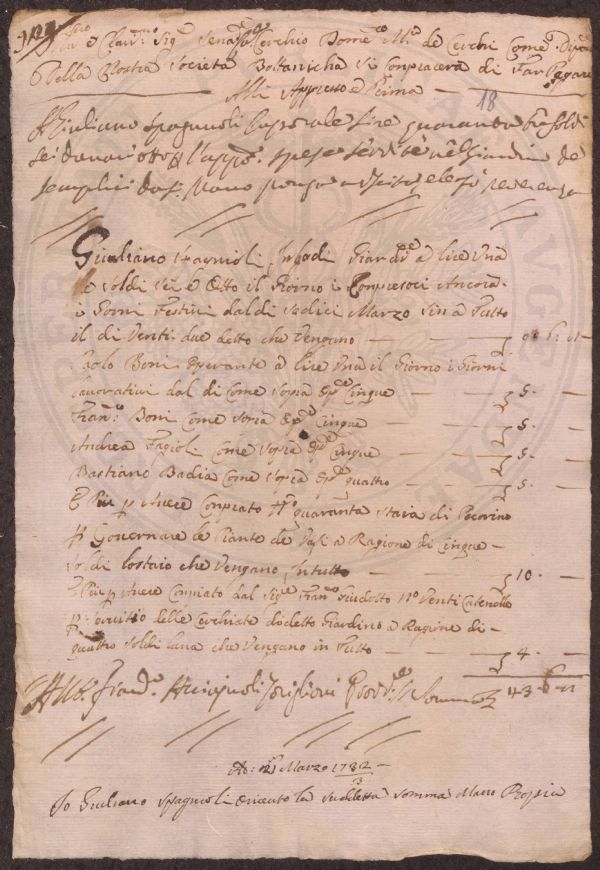 Senat:re Cerchio Dome:co M:a de Cerchi Come
Della Nostra Società Bottanicha Si Conpiacera di Far Pagare
Alli Appresso e Prima
18
A Giuliano Spagnoli Caporale Lire quaranta tre Soldi
Sei danari otto spese servite nel Giardino de
Semplici
Giuliano Spagnioli Giard:re a lire Una
e Soldi Sei e Otto il Giorno i Conpresoci Ancora
i Giorni Festivi dal di Sedici Marzo Sin a Tutto
il di Venti due detto che Vengano
Paolo Boni Operante a lire Una il Giorno i Giorni
Lavorativi dal di Come Sopra Op:e Cinque — 5 —
Fran:co Boni Come Sopra Op:e Cinque — 5 —
Andrea Fagioli Come Sopra Op:e Cinque — 5 —
Bastiano Badia Come Sopra Op:e quattro — 5 —
E Più p Avere Conpiato quaranta Staia di Pecorino
p Governare le Piante de Vasi a Ragione di Cinque
Soldi lo staio che Vengano In tutto — 10 —
E Più p Avere Conpiato dal Sig:re Fran:co N:o Venti
p Servitio delle Cerchiate di detto Giardino a Ragione di
quattro Soldi luna che Vengano in Tutto — 4 —
Provv:re Somma 43 · 6
Marzo 1782
Io Giuliano Spagnioli o ricevto la Sudetta Somma Mano Propia